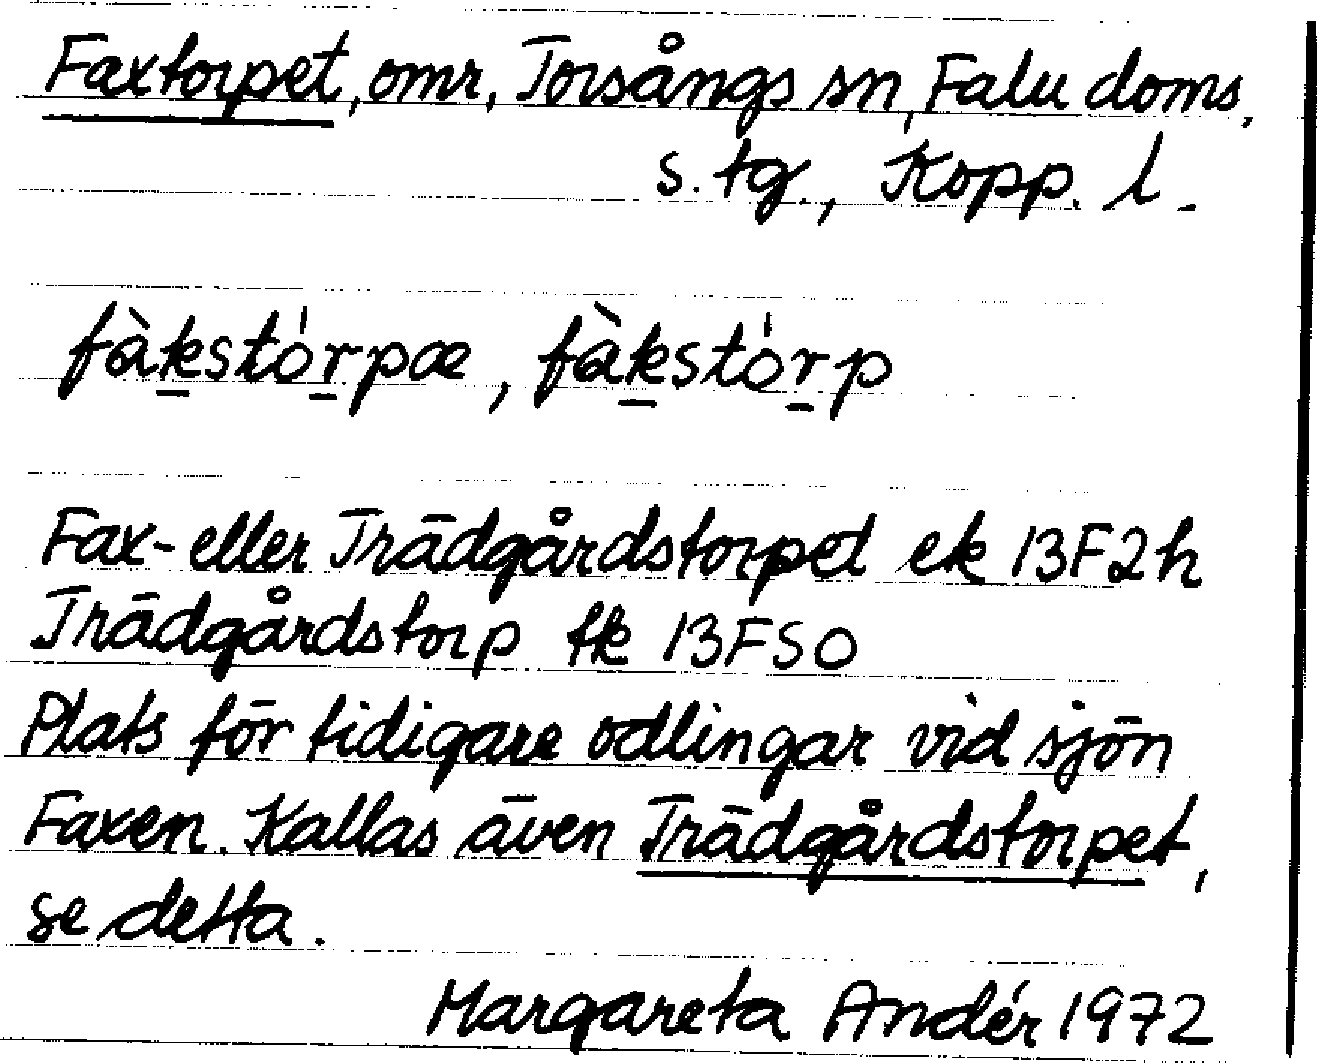 Faxtorpet, omr, Torsångs sn, Falu doms.
s. tg., Kopp. l.
fàkstórpæ, fàkstórp
Fax- eller Trädgårdstorpet ek 13F2h
Trädgårdstorp tk 13FSO
Plats för tidigare odlingar vid sjön
Faxen. Kallas även Trädgårdstorpet,
se detta.
Margareta Andér 1972